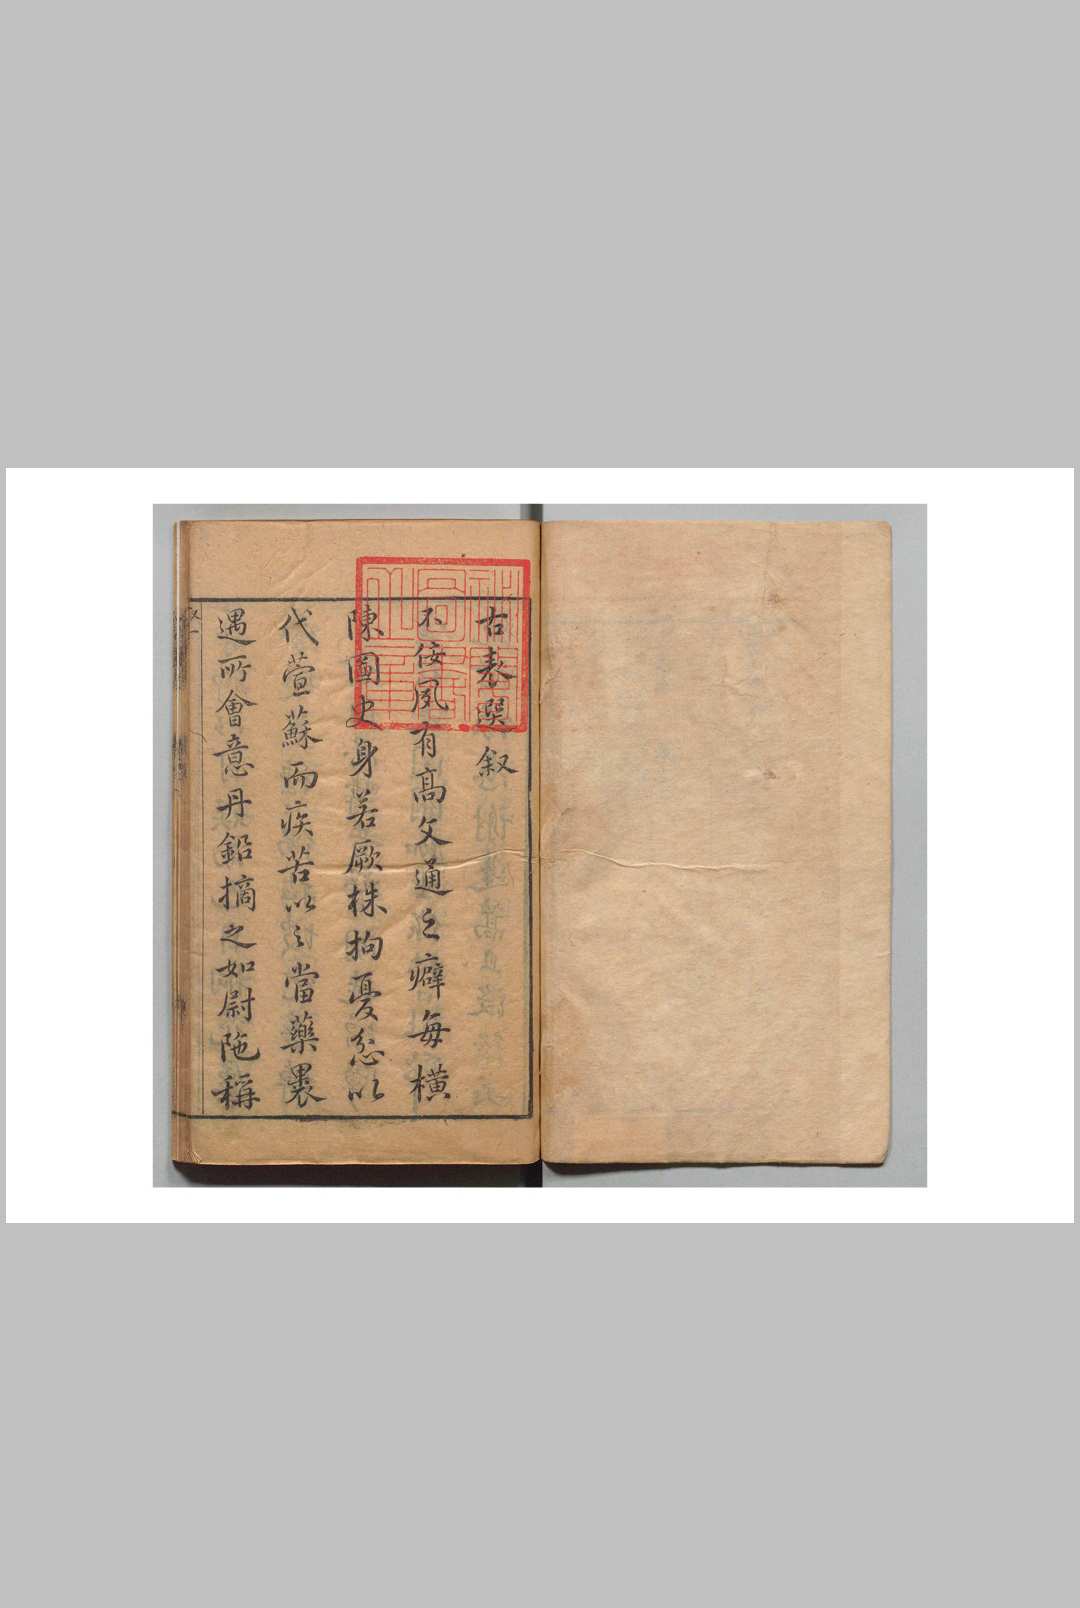 古表選叙
不佞夙有高文通之癖每橫
陳圖史身若厥株拘憂忿以
代萱蘇而疾苦以之當藥裹
遇所會意丹鉛摘之如尉陁稱